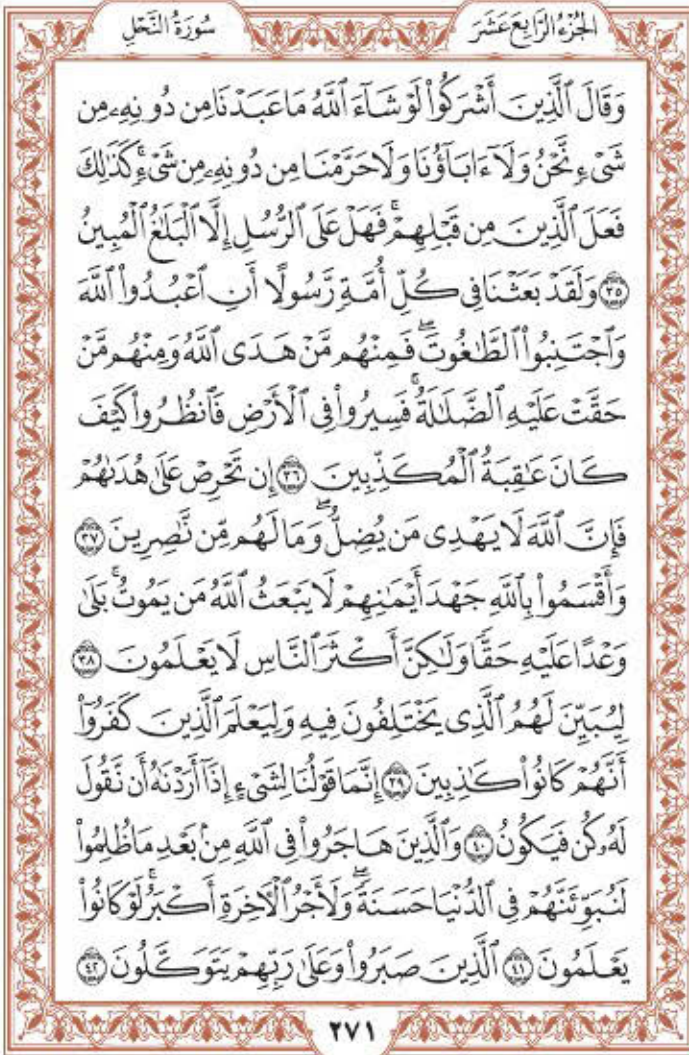 الجُزْءُ الرَّابِعَ عَشَرَ
سُورَةُ النَّحْلِ
وَقَالَ ٱلَّذِينَ أَشْرَكُوا۟ لَوْ شَآءَ ٱللَّهُ مَا عَبَدْنَا مِن دُونِهِۦ مِن
شَىْءٍ نَّحْنُ وَلَآ ءَابَآؤُنَا وَلَا حَرَّمْنَا مِن دُونِهِۦ مِن شَىْءٍ ۚ كَذَٰلِكَ
فَعَلَ ٱلَّذِينَ مِن قَبْلِهِمْ ۚ فَهَلْ عَلَى ٱلرُّسُلِ إِلَّا ٱلْبَلَٰغُ ٱلْمُبِينُ
٣٥ وَلَقَدْ بَعَثْنَا فِى كُلِّ أُمَّةٍ رَّسُولًا أَنِ ٱعْبُدُوا۟ ٱللَّهَ
وَٱجْتَنِبُوا۟ ٱلطَّٰغُوتَ ۖ فَمِنْهُم مَّنْ هَدَى ٱللَّهُ وَمِنْهُم مَّنْ
حَقَّتْ عَلَيْهِ ٱلضَّلَٰلَةُ ۚ فَسِيرُوا۟ فِى ٱلْأَرْضِ فَٱنظُرُوا۟ كَيْفَ
كَانَ عَٰقِبَةُ ٱلْمُكَذِّبِينَ ٣٦ إِن تَحْرِصْ عَلَىٰ هُدَىٰهُمْ
فَإِنَّ ٱللَّهَ لَا يَهْدِى مَن يُضِلُّ ۖ وَمَا لَهُم مِّن نَّٰصِرِينَ ٣٧
وَأَقْسَمُوا۟ بِٱللَّهِ جَهْدَ أَيْمَٰنِهِمْ لَا يَبْعَثُ ٱللَّهُ مَن يَمُوتُ ۚ بَلَىٰ
وَعْدًا عَلَيْهِ حَقًّا وَلَٰكِنَّ أَكْثَرَ ٱلنَّاسِ لَا يَعْلَمُونَ ٣٨
لِيُبَيِّنَ لَهُمُ ٱلَّذِى يَخْتَلِفُونَ فِيهِ وَلِيَعْلَمَ ٱلَّذِينَ كَفَرُوٓا۟
أَنَّهُمْ كَانُوا۟ كَٰذِبِينَ ٣٩ إِنَّمَا قَوْلُنَا لِشَىْءٍ إِذَآ أَرَدْنَٰهُ أَن نَّقُولَ
لَهُۥ كُن فَيَكُونُ ٤٠ وَٱلَّذِينَ هَاجَرُوا۟ فِى ٱللَّهِ مِنۢ بَعْدِ مَا ظُلِمُوا۟
لَنُبَوِّئَنَّهُمْ فِى ٱلدُّنْيَا حَسَنَةً ۖ وَلَأَجْرُ ٱلْـَٔاخِرَةِ أَكْبَرُ ۚ لَوْ كَانُوا۟
يَعْلَمُونَ ٤١ ٱلَّذِينَ صَبَرُوا۟ وَعَلَىٰ رَبِّهِمْ يَتَوَكَّلُونَ ٤٢
٢٧١